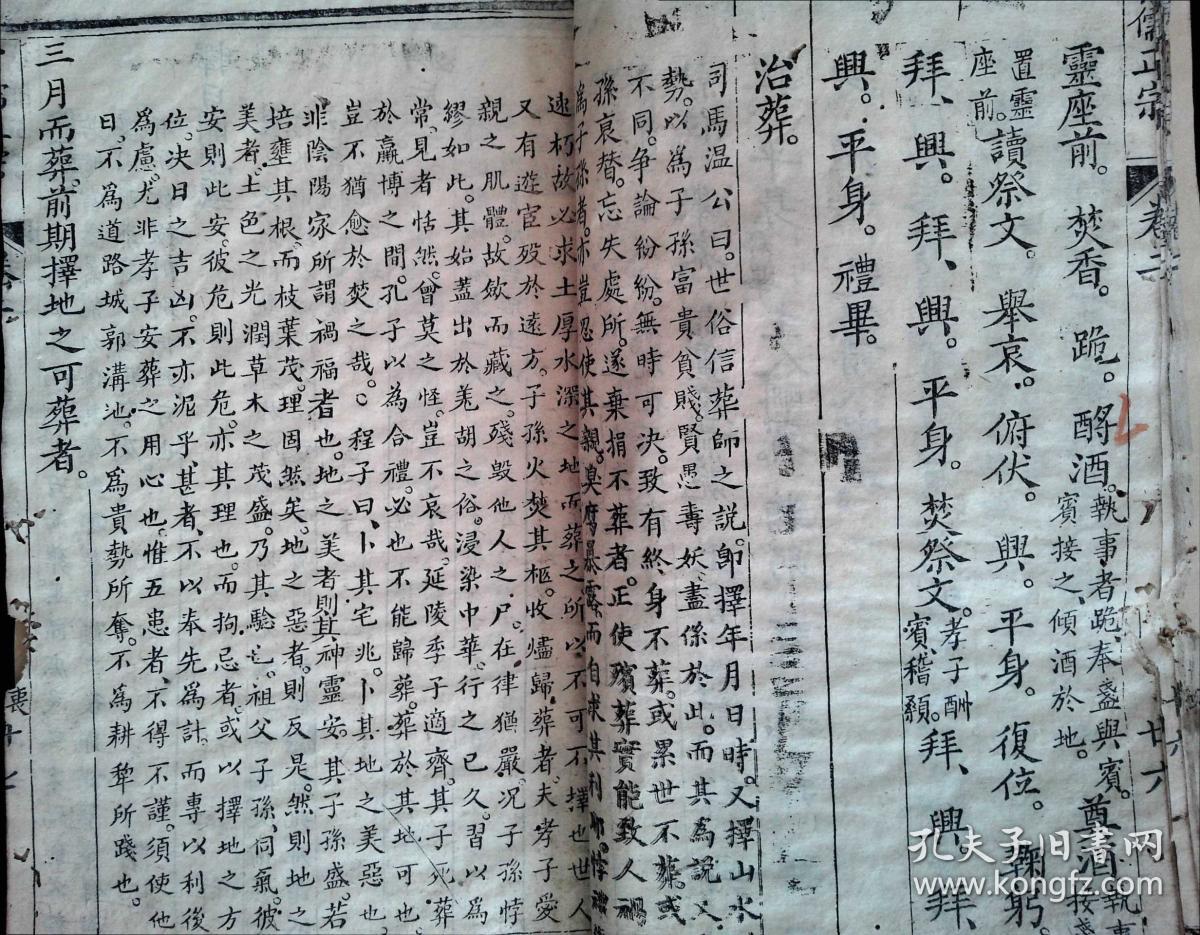 儒正宗 卷二 廿六
靈座前。焚香。跪。酹酒。執事者跪、奉盞與賓。賓接之、傾酒於地。奠酒執事
置靈座前。讀祭文。舉哀。俯伏。興。平身。復位。鞠躬。
拜、興。拜、興。平身。焚祭文。孝子酬賓、稽顙。拜、興。拜、
興。平身。禮畢。
治葬。
司馬温公曰。世俗信葬師之說。卽擇年月日時。又擇山水
勢。以爲子孫富貴貧賤。賢愚壽妖、盡係於此。而其爲說又
不同。爭論紛紛。無時可決。致有終身不葬。或累世不葬。或
孫衰替。忘失處所。遂棄捐不葬者。正使殯葬實能致人禍
爲子孫者。亦豈忍使其親。臭腐暴露而自求其利耶。悖禮
速朽。故必求土厚水深之地而葬之。所以不可不擇也世人
又有遊宦歿於遠方。子孫火焚其柩。收燼歸葬者。夫孝子愛
親之肌體。故斂而藏之。殘毀他人之尸。在律猶嚴。况子孫悖
繆如此。其始蓋出於羌胡之俗。浸染中華。行之已久。習以爲
常。見者恬然。曾莫之怪。豈不哀哉。延陵季子適齊。其子死。葬
於羸博之間。孔子以爲合禮。必也不能歸葬。葬於其地可也。
豈不猶愈於焚之哉。○程子曰、卜其宅兆。卜其地之美惡也。
非陰陽家所謂禍福者也。地之美者則其神靈安。其子孫盛。若
培壅其根。而枝葉茂。理固然矣。地之惡者。則反是。然則地之
美者。土色之光潤草木之茂盛。乃其驗也。祖父子孫、同氣。彼
安則此安。彼危則此危。亦其理也。而拘忌者、或以擇地之方
位。決日之吉凶。不亦泥乎。甚者、不以奉先爲計。而專以利後
爲慮。尤非孝子安葬之用心也。惟五患者、不得不謹。須使他
日。不爲道路城郭溝池。不爲貴勢所奪。不爲耕犂所踐也。
三月而葬。前期擇地之可葬者。
孔夫子旧書网
www.kongfz.com